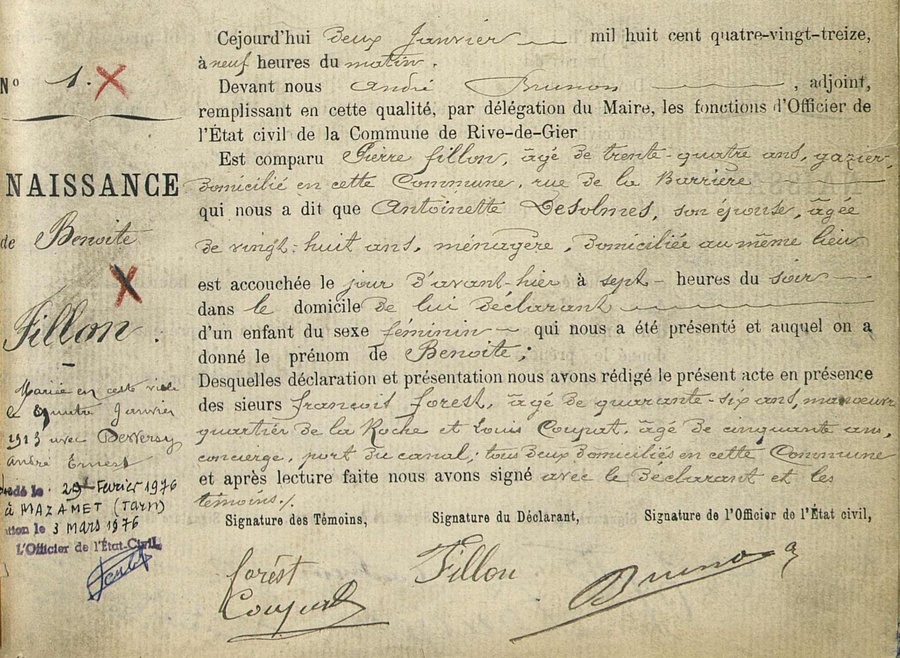 Cejourd'hui deux Janvier mil huit cent quatre-vingt-treize,
à neuf heures du matin.
N° 1.
Devant nous André Brunon, adjoint,
remplissant en cette qualité, par délégation du Maire, les fonctions d'Officier de
l'État civil de la Commune de Rive-de-Gier
Est comparu Pierre fillon, âgé de trente-quatre ans, gazier,
domicilié en cette Commune, rue de la Barrière
qui nous a dit que Antoinette Desolmes, son épouse, âgée
de vingt-huit ans, ménagère, domiciliée au même lieu
est accouchée le jour d'avant-hier à sept heures du soir
dans le domicile de lui déclarant
d'un enfant du sexe féminin qui nous a été présenté et auquel on a
donné le prénom de Benoite;
Desquelles déclaration et présentation nous avons rédigé le présent acte en présence
des sieurs françois forest, âgé de quarante-six ans, manoeuvre
quartier de la Roche et Louis Coupat, âgé de cinquante ans,
concierge, port du canal; tous deux domiciliés en cette Commune
et après lecture faite nous avons signé avec le déclarant et les
témoins./.
Signature des Témoins, Signature du Déclarant, Signature de l'Officier de l'État civil,
forest Fillon Brunon
Coupat
NAISSANCE
de Benoite
Fillon.
Mariée en cette ville
le Janvier
1913 avec
André Ernest
le 29 Fevrier 1976
à MAZAMET (Tarn)
le 3 Mars 1976
L'Officier de l'État-Civil,